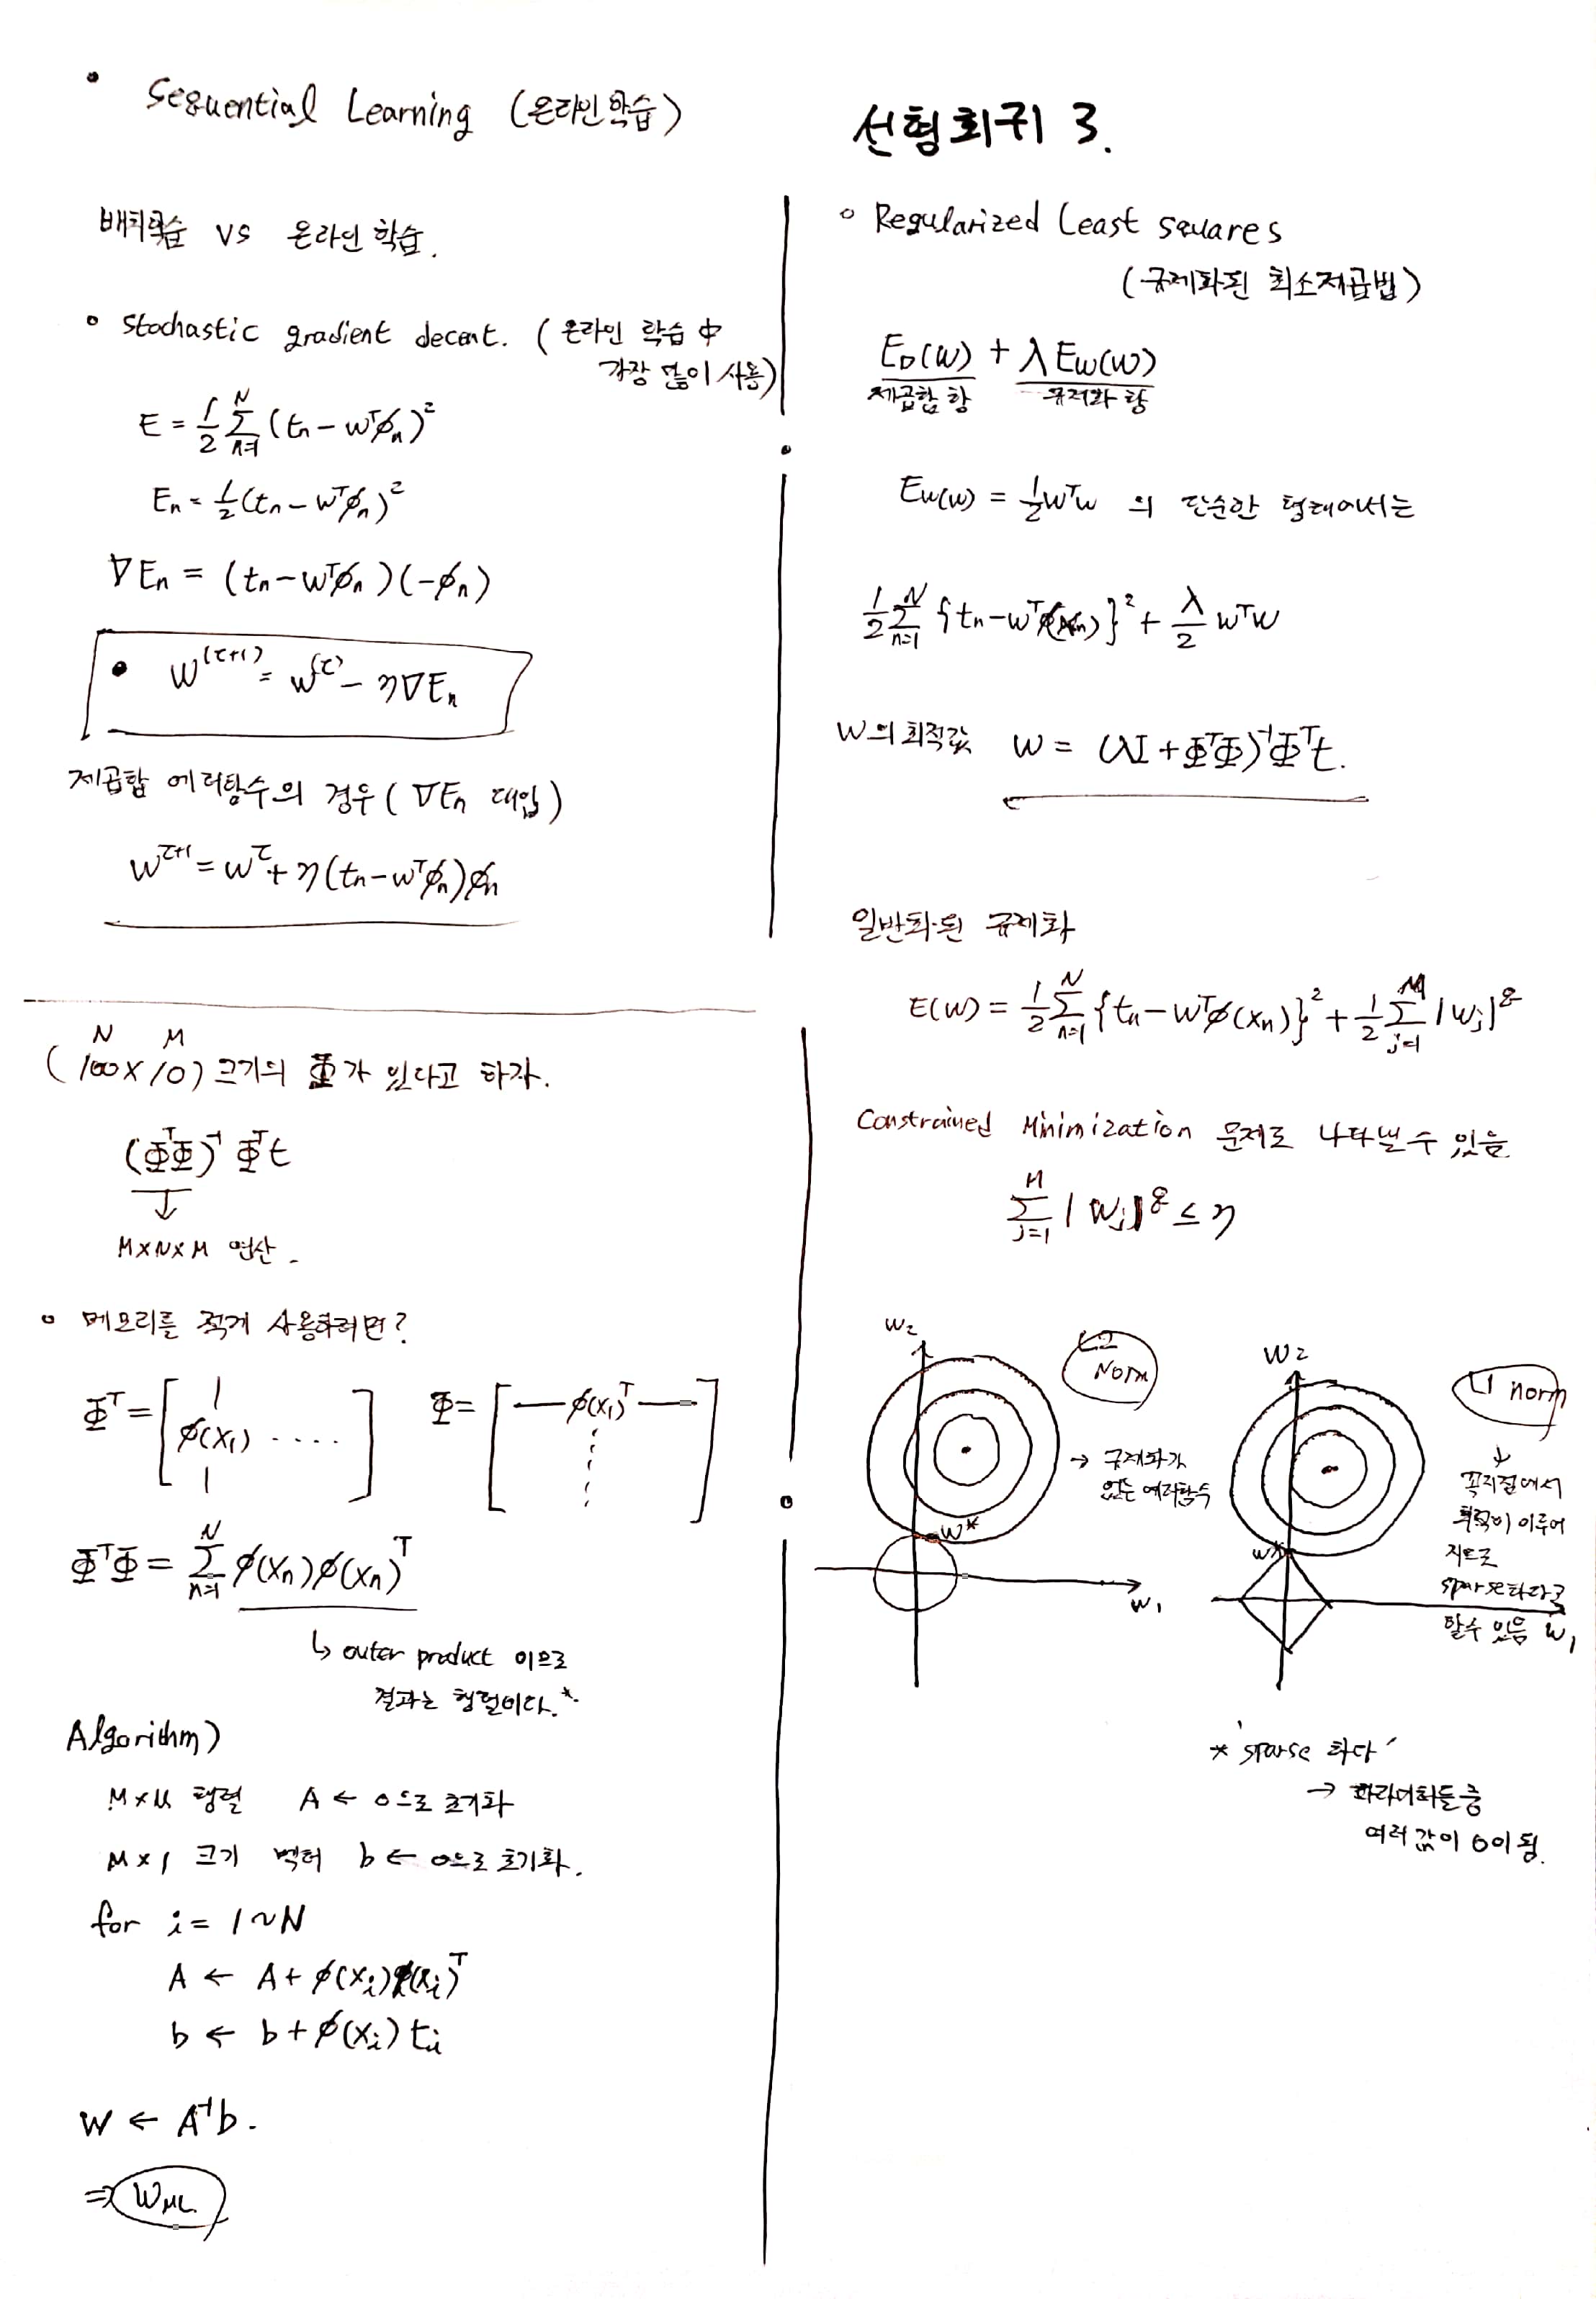 • Sequential Learning (온라인 학습)
배치학습 vs 온라인 학습.
o Stochastic gradient decent. (온라인 학습 中
가장 많이 사용)
E = 1/2 Σ_{n=1}^{N} (tn - wᵀφn)²
En = 1/2 (tn - wᵀφn)²
∇En = (tn - wᵀφn)(-φn)
• W^(τ+1) = w^(τ) - η∇En
제곱합 에러함수의 경우 (∇En 대입)
w^τ+1 = w^τ + η(tn - wᵀφn)φn
N M
(100 x 10) 크기의 Φ가 있다고 하자.
(ΦᵀΦ)⁻¹ Φᵀt
↓
M x N x M 연산.
o 메모리를 적게 사용하려면?
Φᵀ = [ | φ(x₁) | .... ] Φ = [ — φ(x₁)ᵀ — ⋮ ]
ΦᵀΦ = Σ_{n=1}^{N} φ(xn)φ(xn)ᵀ
↳ outer product 이므로
결과는 행렬이다.*
Algorithm)
M x M 행렬 A ← 0으로 초기화
M x 1 크기 벡터 b ← 0으로 초기화.
for i = 1 ~ N
A ← A + φ(xi)φ(xi)ᵀ
b ← b + φ(xi) ti
W ← A⁻¹b.
⇒ W_ML
선형회귀 3.
o Regularized Least squares
(규제화된 최소제곱법)
E_D(w) + λE_W(w)
제곱합 항 규제화 항
Ew(w) = 1/2 wᵀw 의 단순한 형태에서는
1/2 Σ_{n=1}^{N} {tn - wᵀφ(xn)}² + λ/2 wᵀw
W의 최적값 W = (λI + ΦᵀΦ)⁻¹Φᵀt.
일반화된 규제화
E(w) = 1/2 Σ_{n=1}^{N} {tn - wᵀφ(xn)}² + 1/2 Σ_{j=1}^{M} |wj|^q
Constrained Minimization 문제로 나타낼 수 있음
Σ_{j=1}^{M} |wj|^q ≤ η
w₂
L2
Norm
→ 규제화가
없는 에러함수
w*
w₁
w₂
L1 norm
↓
꼭지점에서
이루어
지므로
sparse하다고
할수 있음
w*
w₁
* 'sparse 하다'
→ 파라미터들 중
여러 값이 0이 됨.